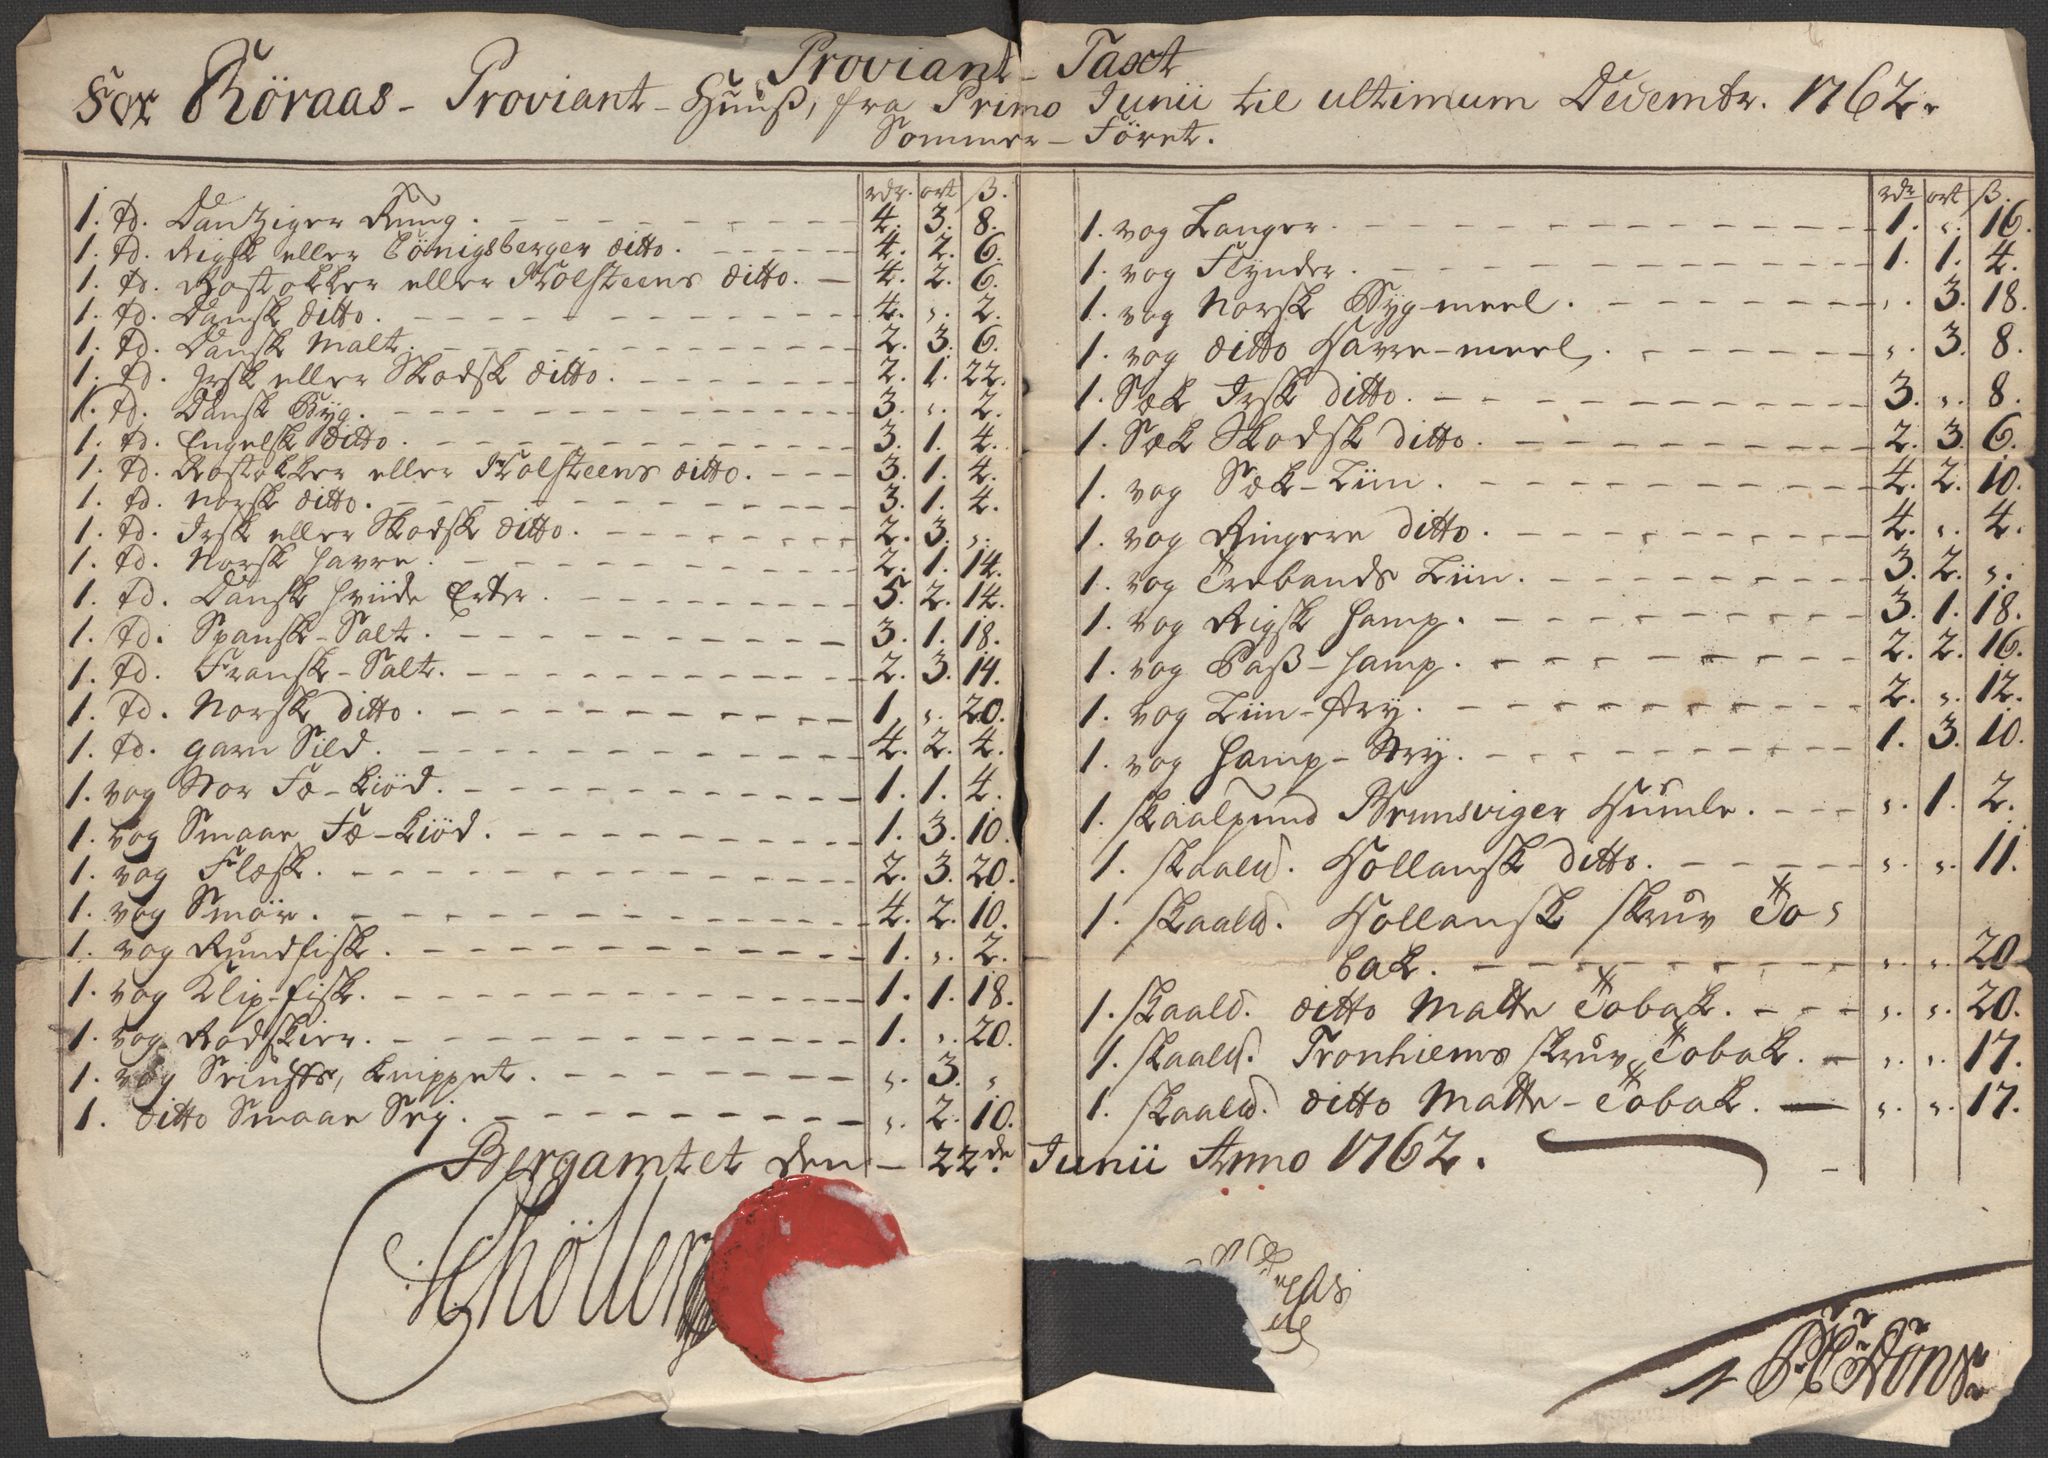 Proviant-Taxt
For Röraas-Proviant-Huuß, fra Primo Junii til ultimum Decembr. 1762.
Sommer-Föret.
rdr. ort ß.
1. td. Dantziger Rug. 4. 3. 8.
1. td. Rigsk eller Cönigsberger ditto. 4. 2. 6.
1. td. Rostokker eller Holsteens ditto. 4. 2. 6.
1. td. Dansk ditto. 4. „. 2.
1. td. Dansk Malt. 2. 3. 6.
1. td. Irsk eller Skodsk ditto. 2. 1. 22.
1. td. Dansk Byg. 3. „. 2.
1. td. Engelsk ditto. 3. 1. 4.
1. td. Rostokker eller Holsteens ditto. 3. 1. 4.
1. td. Norsk ditto. 3. 1. 4.
1. td. Irsk eller Skodsk ditto. 2. 3. „.
1. td. Norsk Havre. 2. 1. 14.
1. td. Dansk hviide Erter. 5. 2. 14.
1. td. Spansk-Salt. 3. 1. 18.
1. td. Fransk-Salt. 2. 3. 14.
1. td. Norsk ditto. 1. „. 20.
1. td. garn Sild. 4. 2. 4.
1. vog Stor Fæ-Kiöd. 1. 1. 4.
1. vog Smaae Fæ-Kiöd. 1. 3. 10.
1. vog Flæsk. 2. 3. 20.
1. vog Smör. 4. 2. 10.
1. vog Rundfisk. 1. „. 2.
1. vog Klip-fisk. 1. 1. 18.
1. vog Rodskier. 1. „. 20.
1. vog Knippet. „. 3. „
1. ditto Smaae Sej. „. 2. 10.
rdr ort ß.
1. vog Langer. 1. „. 16.
1. vog Flynder. 1. 1. 4.
1. vog Norsk Byg-meel. „. 3. 18.
1. vog ditto Havre-meel. „. 3. 8.
1. Sæk Irsk ditto. 3. „. 8.
1. Sæk Skodsk ditto. 2. 3. 6.
1. vog Sæk-Liin. 4. 2. 10.
1. vog Ringere ditto. 4. „. 4.
1. vog Trebands Liin. 3. 2. „.
1. vog Rigsk Hamp. 3. 1. 18.
1. vog Paß-Hamp. 2. 2. 16.
1. vog Liin-Stry. 2. „. 12.
1. vog Hamp-Stry. 1. 3. 10.
1. skaalpund Brunsviger Humle. „. 1. 2.
1. skaald. Hollansk ditto. „. „. 11.
1. skaald. Hollansk skruv To-
bak. „. „. 20
1. skaald. ditto Matte Tobak. „. „. 20.
1. skaald. Tronhiems skruv Tobak. „. „. 17.
1. skaald. ditto Matte-Tobak. „. „. 17.
Bergamtet den 22de Junii Anno 1762.
Schöller